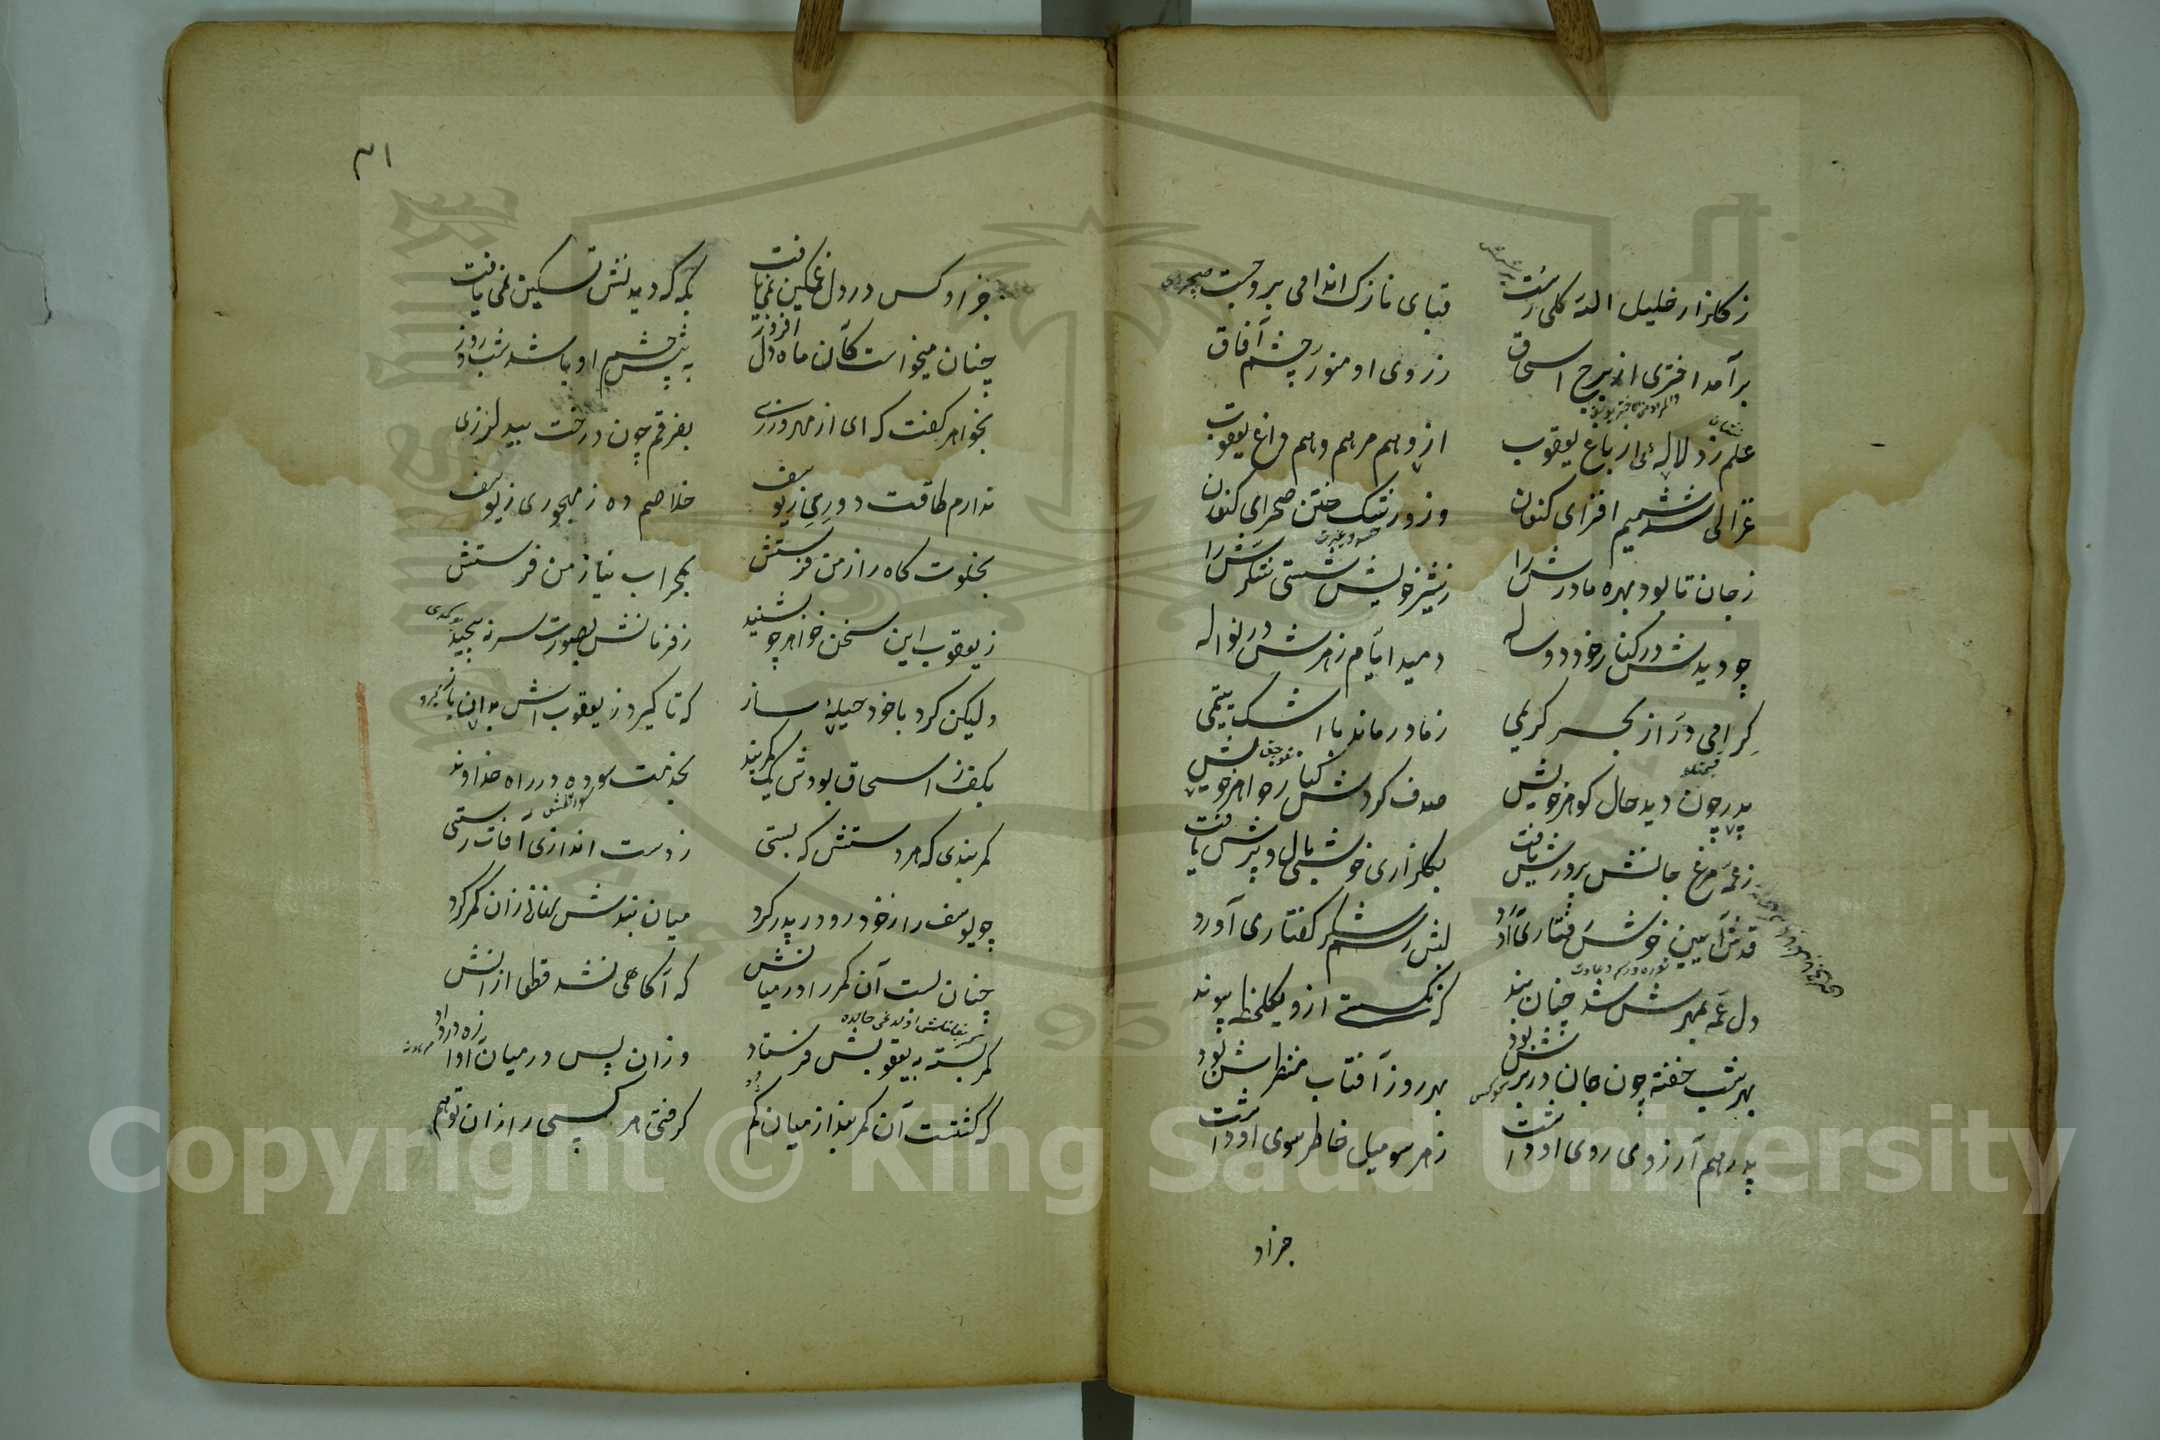 ز گلزار خلیل الله گلی رست قبای نازک اندامی برو جست
برآمد اختری از برج اسحاق ز روی او منور چشم آفاق
علم زد لاله‌ئی از باغ یعقوب ازو هم مرهم و هم داغ یعقوب
غزالی شد شمیم افزای کنعان وزو رشک ختن صحرای کنعان
ز جان تا بود بهره مادرش را ز شیر خویش شستی شکرش را
چو دیدش در کنار خود دو ساله دمید ایام زهرش در نواله
گرامی در از بحر کریمی ز مادر ماند با اشک یتیمی
پدر چون دید حال گوهر خویش صدف کردش کنار خواهر خویش
ز عمه مرغ جانش پرورش یافت بگلزاری خوشی بال و پرش یافت
قدش آیین خوش رفتاری آورد لبش رسم شکر گفتاری آورد
دل عمه بمهرش شد چنان بند که نگسستی ازو یکلحظه پیوند
بهر شب خفته چون جان در برش بود بهر روز آفتاب منظرش بود
پدر هم آرزوی روی او داشت ز هر سو میل خاطر سوی او داشت
جز او
۳۱
جز او کس در دل غمگین نمی‌یافت بگه گه دیدنش تسکین نمی‌یافت
چنان میخواست کآن ماه دل افروز به پیش چشم او باشد شب و روز
بخواهر گفت که ای از مهرورزی بفرقم چون درخت بید لرزی
ندارم طاقت دوری ز یوسف خلاصم ده ز مهجوری ز یوسف
بخلوت گاه راز من فرستش بمحراب نیاز من فرستش
ز یعقوب این سخن خواهر چو بشنید ز فرمانش بصورت سر نپیچید
ولیکن کرد با خود حیلهٔ ساز که تا گیرد ز یعقوبش بدان باز
بکف ز اسحاق بودش یک کمربند بخدمت سوده در راه خداوند
کمربندی که هر دستش که بستی ز دست اندازی آفات رستی
چو یوسف را ز خود رو در پدر کرد میان بندش نهانی زان کمر کرد
چنان بست آن کمر را در میانش که آگاهی نشد قطعا از آنش
کمر بسته به یعقوبش فرستاد وزان پس در میان آوازه در داد
که گشتست آن کمربند از میان گم گرفتی هر کسی را زان توهم